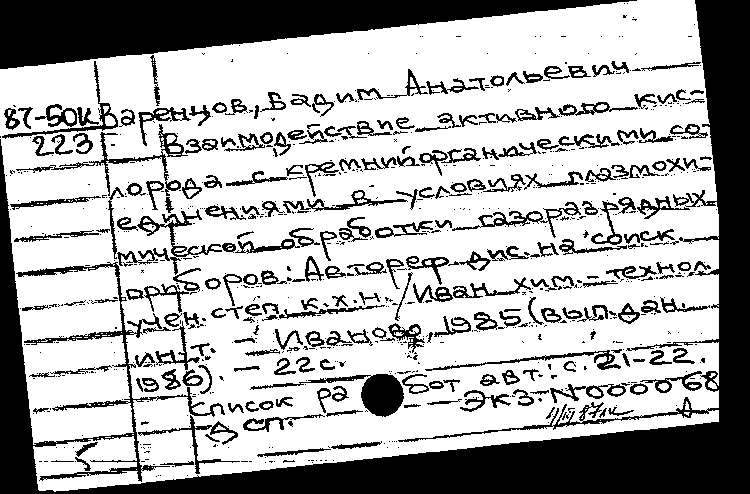 87-50к Варенцов, Вадим Анатольевич
223 Взаимодействие активного кис-
лорода с кремнийорганическими со-
единениями в условиях плазмохи-
мической обработки газоразрядных
приборов: Автореф. дис. на соиск.
учен. степ. к.х.н. / Иван. хим.-технол.
ин-т. - Иваново, 1985 (вып. дан.
1986). - 22с.
Список работ авт.: с. 21-22.
Δ сп. - Экз. N 000068